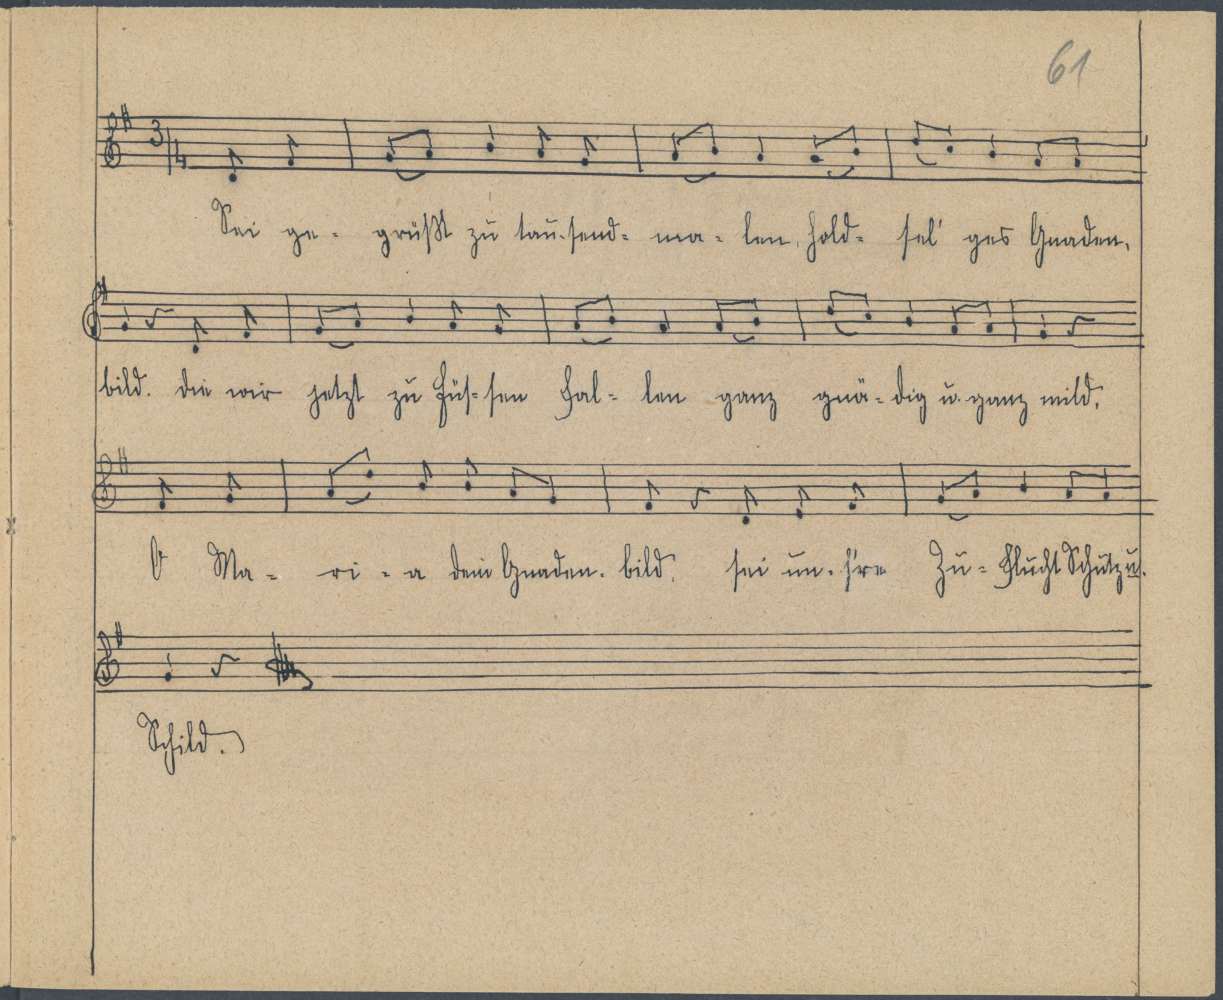 61
3/4
Sei ge- grüßt zu tau-send- ma- len, hold- sel' ges Gnaden,
bild. die wir jetzt zu Füs-sen fal- len ganz gnä-dig u. ganz mild,
O Ma- ri-a dein Gnaden- bild, sei un-s're Zu-flucht Schutz u.
Schild.